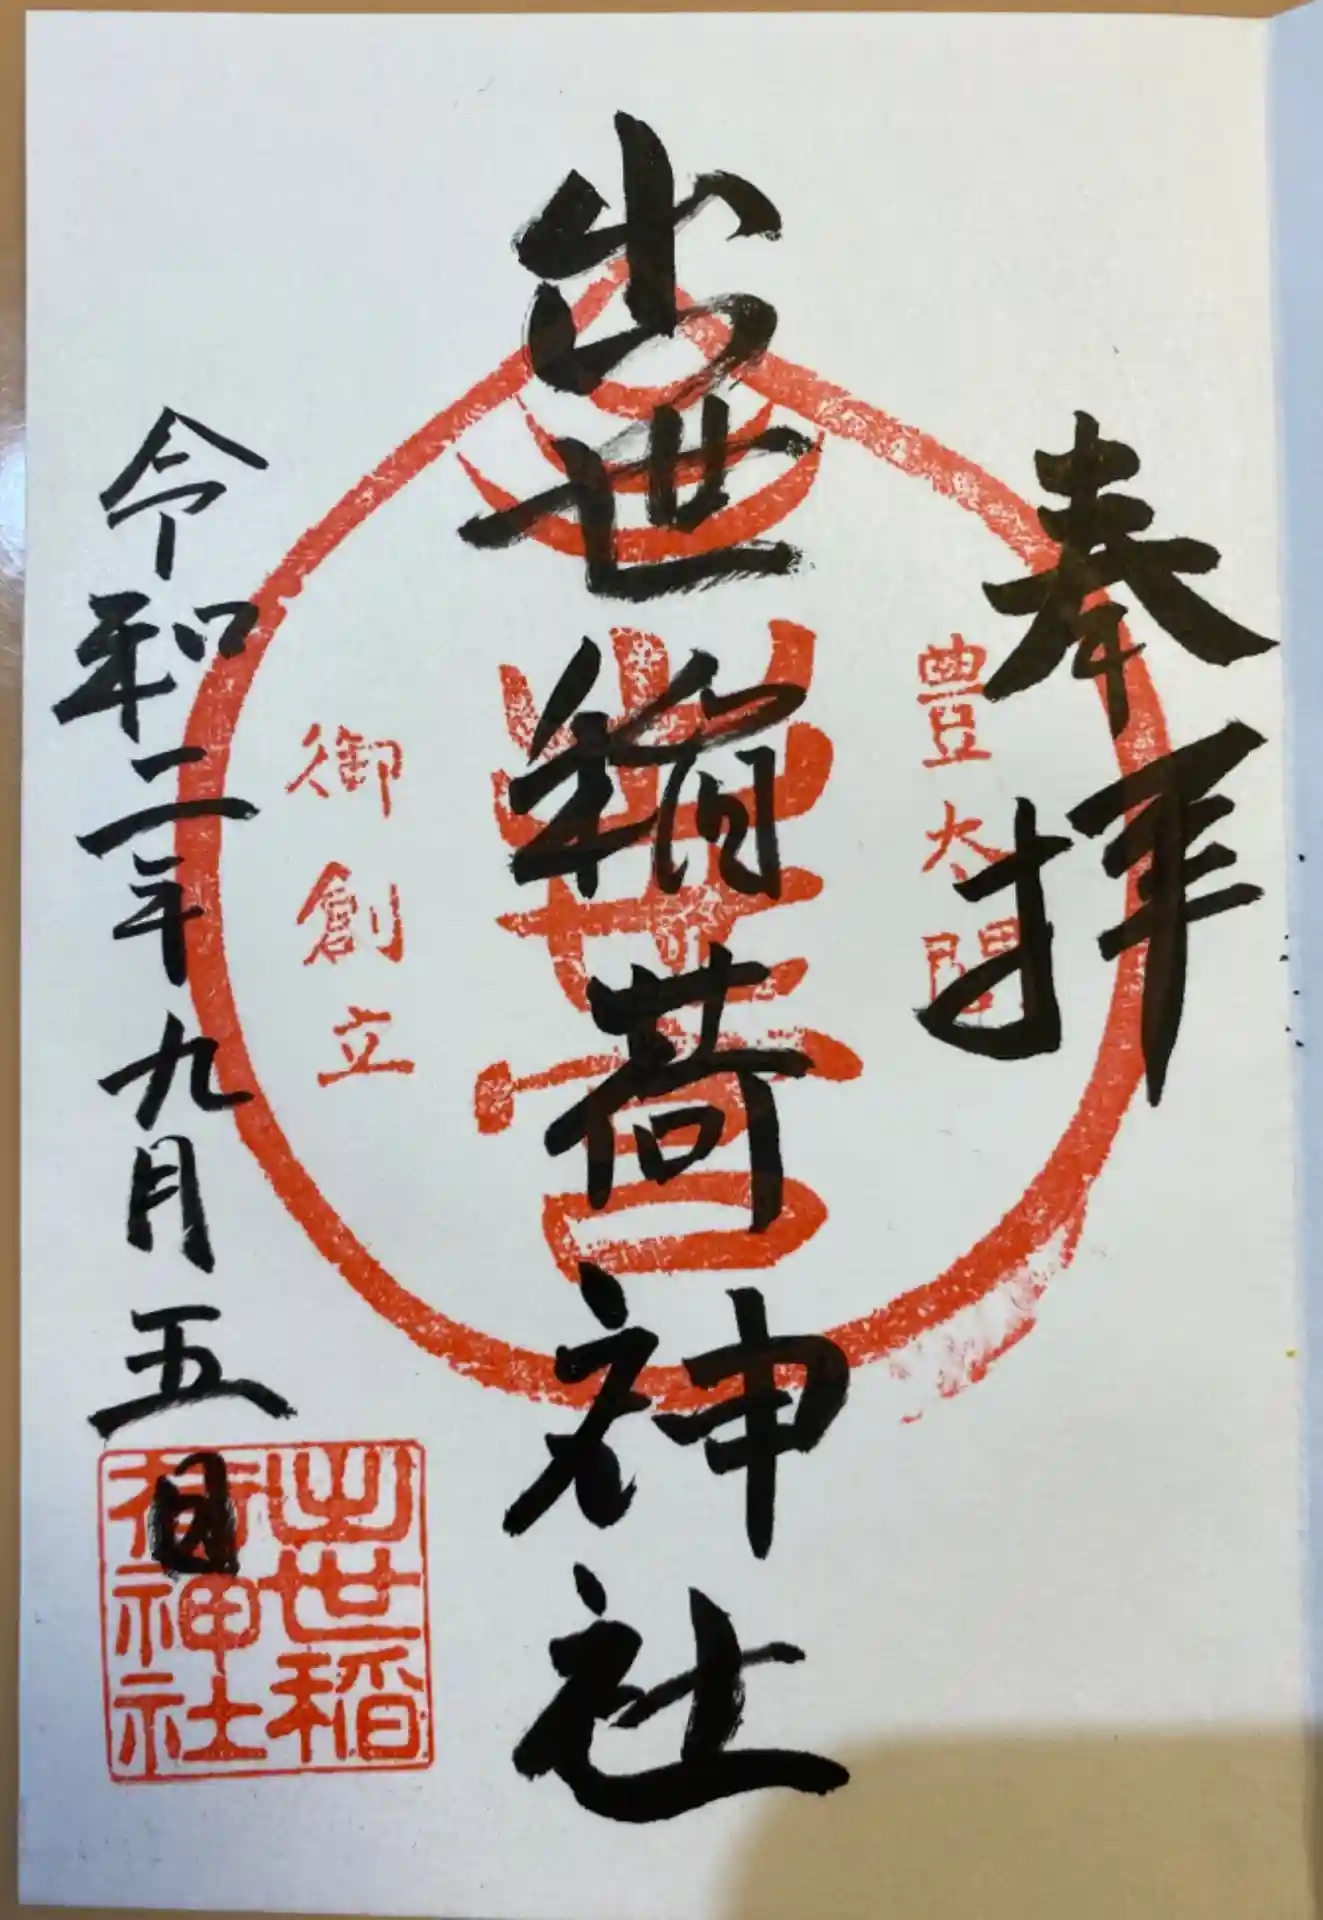 奉拝
豊太閤
出世稲荷神社
出世吉
御創立
令和二年九月五日
出世稲
荷神社